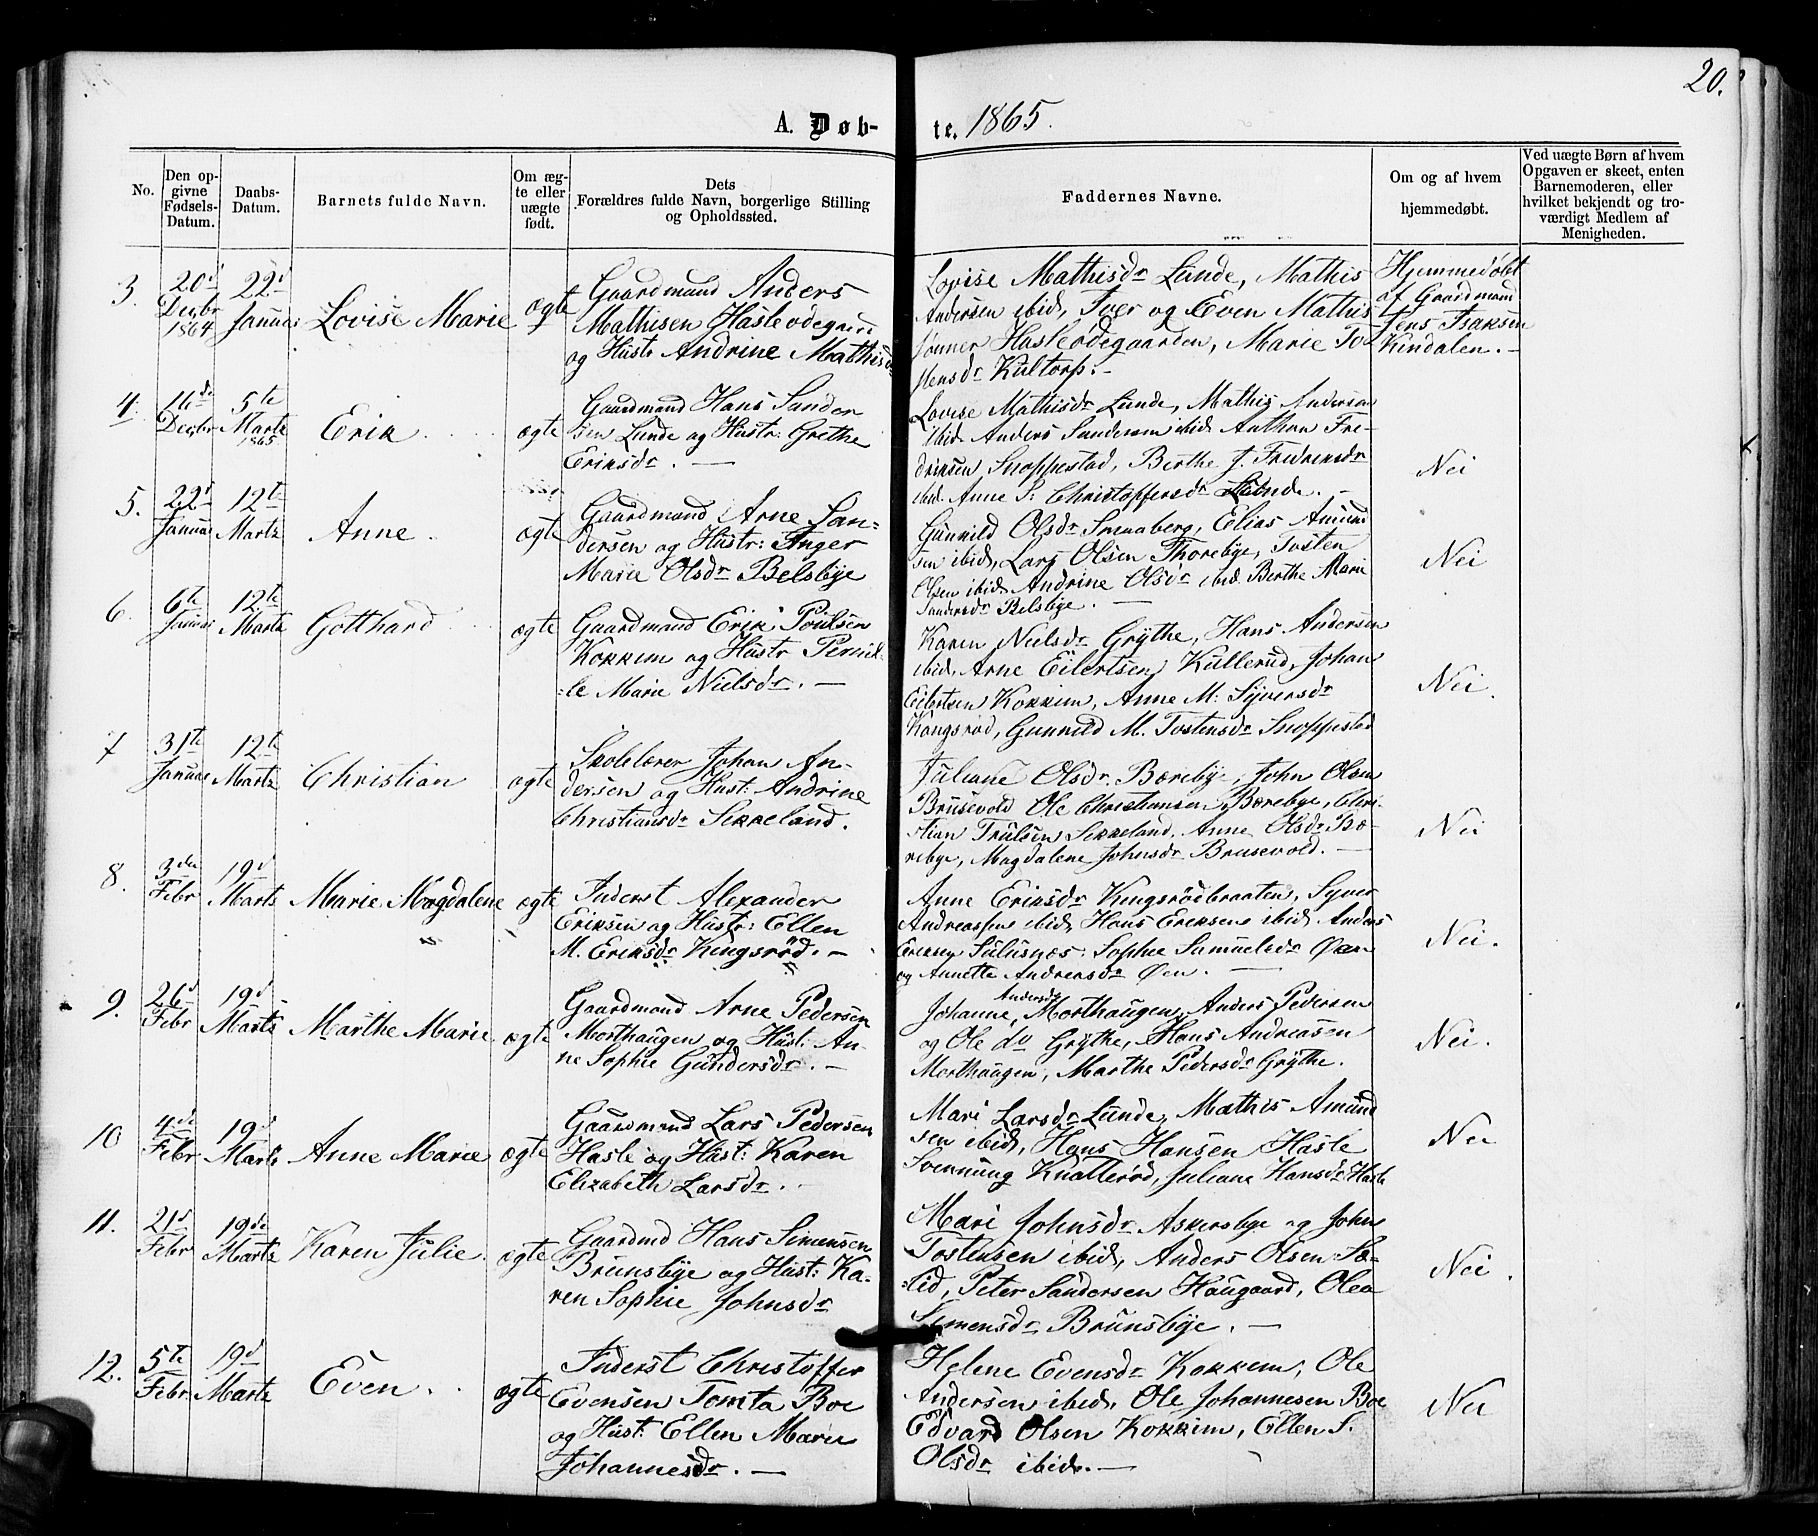 20.
A. Døb- te. 1865.
No.
Den op-
givne
Fødsels-
Datum.
Daabs-
Datum.
Barnets fulde Navn.
Om æg-
te eller
uægte
født.
Dets
Forældres fulde Navn, borgerlige Stilling
og Opholdssted.
Faddernes Navne.
Om og af hvem
hjemmedøbt.
Ved uægte Børn af hvem
Opgaven er skeet, enten
Barnemoderen, eller
hvilket bekjendt og tro-
værdigt Medlem af
Menigheden.
3.
20d
Decbr
1864
22d
Januar
Lovise Marie
ægte
Gaardmand Anders
Mathisen Hasleødegaard
og Hustr Andrine Mathisdr
Lovise Mathisdr Lunde, Mathis
Andersen ibid, Iver og Even Mathis
sønner Hasleødegaarden, Marie To-
stensdr Kultorp. -
Hjemmedøbt
af Gaardmand
Jens Isaksen
Kindalen. -
4.
16de
Decbr
5te
Marts
1865
Erik
ægte
Gaardmand Hans Sander
sen Lunde og Hustr: Grethe
Eriksdr. —
Lovise Mathisdr Lunde, Mathis Andersen
ibid Anders Sandersen ibid Anthon Fre-
driksen Snoppestad, Berthe J. Fredriksdr
ibid. Anne S: Christoffersdr Lunde. -
Nei
5.
22d
Januar
12te
Marts
Anne.
ægte
Gaardmand Arne San-
dersen og Hustr: Inger
Marie Olsdr Belsbye
Gunnild Olsdr Smaaberg, Elias Amund
sen ibid, Lars Olsen Thorebye, Tosten
Olsen ibid Andrine Olsdr ibid Berthe Marie
Sandersdr Belsbye. —
Nei
6.
6te
Januar
12te
Marts
Gotthard
ægte
Gaardmand Erik Poulsen
Kokkim og Hustr Pernil-
le Marie Nielsdr. —
Karen Nielsdr Grythe, Hans Andersen
ibid, Arne Eilertsen Kullerud, Johan
Eilertsen Kokkim, Anne M: Syversdr
Kongsrød, Gunnild M. Tostensdr Snoppestad
Nei.
7
31te
Januar
12te
Marts
Christian
ægte
Skolelærer Johan An-
dersen og Hust: Andrine
Christiansdr Sikkeland.
Juliane Olsdr Bærebye, John Olsen
Brusevold Ole Christiansen Bærebye, Chri-
stian Trulsen Sikkeland, Anne Olsdr Bæ-
rebye, Magdalene Johnsdr Brusevold. —
Nei
8.
3die
Febr
19d
Marts
Marie Magdalene
ægte
Inderst Alexander
Eriksen og Hustr: Ellen
M. Eriksdr Kingsrød. -
Anne Eriksdr Kingsrødbraaten, Syver
Andreassen ibid, Hans Eriksen ibid, Anders
Eriksen Julusnæs, Sophie Samuelsdr Øen
og Annette Andreasdr Øen. —
Nei.
9.
26d
Febr
19d
Marts
Marthe Marie
ægte
Gaardmand Arne Pedersen
Morthaugen og Hust: An-
ne Sophie Gundersdr. —
Johanne Andersdr Morthaugen, Anders Pedersen
og Ole do Grythe, Hans Andreasen
Morthaugen, Marthe Pedersdr Grythe.
Nei.
10
4de
Febr
19d
Marts
Anne Marie
ægte
Gaardmand Lars Pedersen
Hasle og Hust: Karen
Elizabeth Larsdr.
Mari Larsdr Lunde, Mathis Amund
sen ibid, Hans Hansen Hasle
Svennung Knatterød, Juliane Hansdr Hasle
Nei
11.
21d
Febr
19de
Marts
Karen Julie.
ægte
Gaardmd Hans Simensen
Brunsbye og Hust: Ka-
ren Sophie Johnsdr
Mari Johnsdr Askersbye og John
Tostensen ibid, Anders Olsen Sø-
lid, Peter Sandersen Haugaard, Olea
Simensdr Brunsbye. —
Nei.
12.
5te
Febr.
19d
Marts
Even.
ægte
Inderst Christoffer
Evensen Tomta Boe
og Hust: Ellen Marie
Johannesdr. —
Helene Evensdr Kokkim, Ole
Andersen ibid, Ole Johannesen Boe
Edvard Olsen Kokkim, Ellen S.
Olsdr ibid. —
Nei